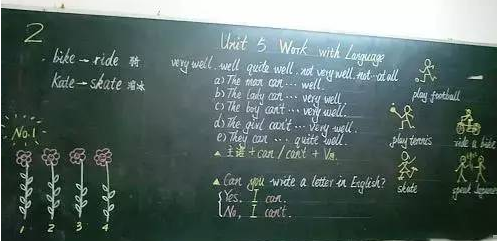 2
bike → ride 骑
Kate → skate 溜冰
No.1
1 2 3 4
Unit 5 Work with Language
very well, well quite well, not very well, not...at all
a) The man can ... well.
b) The lady can ... very well.
c) The boy can't ... very well.
d) The girl can't ... very well.
e) They can ... quite well.
▲ 主语 + can / can't + V
▲ Can you write a letter in English?
{Yes, I can.
No, I can't.
play football
play tennis
ride a bike
skate
speak